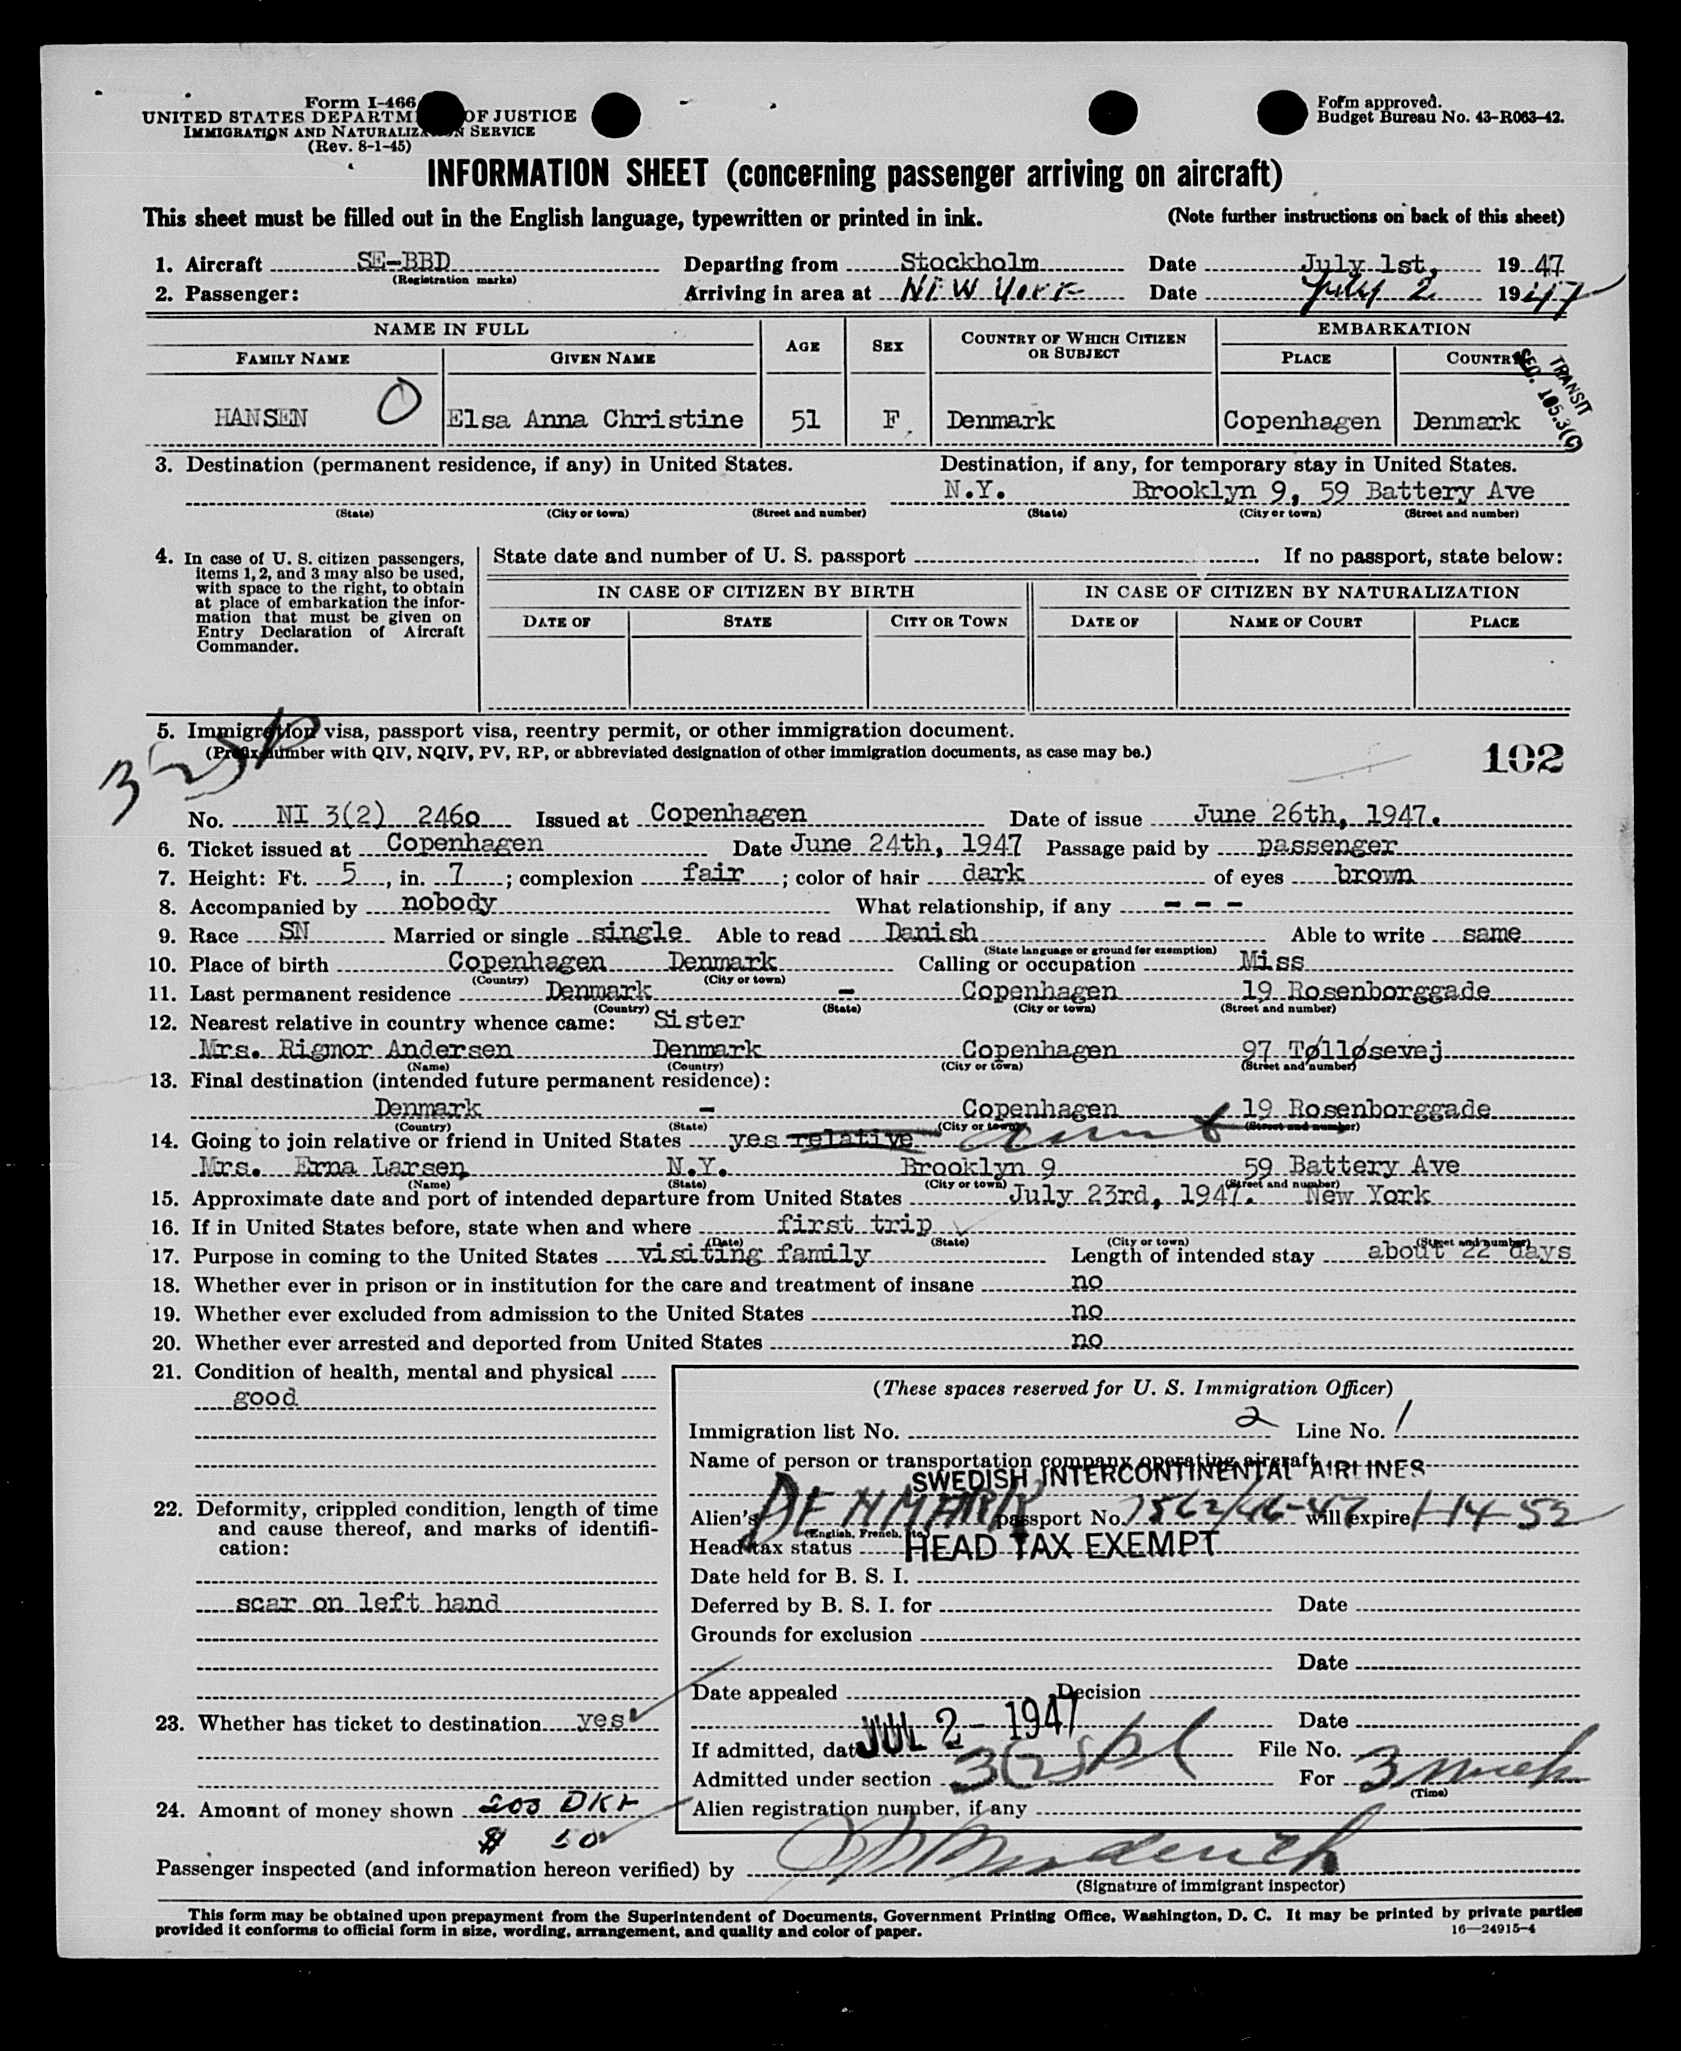 Form I-466
UNITED STATES DEPARTM OF JUSTICE
IMMIGRATION AND NATURALIZATION SERVICE
(Rev. 8-1-45)
Form approved.
Budget Bureau No. 43-R063-42.
INFORMATION SHEET (concerning passenger arriving on aircraft)
This sheet must be filled out in the English language, typewritten or printed in ink. (Note further instructions on back of this sheet)
1. Aircraft SE-BBD Departing from Stockholm Date July 1st, 1947
(Registration marks)
2. Passenger: Arriving in area at NEW YORK Date July 2 1947
NAME IN FULL AGE SEX COUNTRY OF WHICH CITIZEN OR SUBJECT EMBARKATION
FAMILY NAME GIVEN NAME PLACE COUNTRY
TRANSIT
SEC. 105.3(C)
HANSEN O Elsa Anna Christine 51 F. Denmark Copenhagen Denmark
3. Destination (permanent residence, if any) in United States. Destination, if any, for temporary stay in United States.
N.Y. Brooklyn 9, 59 Battery Ave
(State) (City or town) (Street and number) (State) (City or town) (Street and number)
4. In case of U. S. citizen passengers, items 1, 2, and 3 may also be used, with space to the right, to obtain at place of embarkation the information that must be given on Entry Declaration of Aircraft Commander.
State date and number of U. S. passport If no passport, state below:
IN CASE OF CITIZEN BY BIRTH IN CASE OF CITIZEN BY NATURALIZATION
DATE OF STATE CITY OR TOWN DATE OF NAME OF COURT PLACE
5. Immigration visa, passport visa, reentry permit, or other immigration document.
(Prefix number with QIV, NQIV, PV, RP, or abbreviated designation of other immigration documents, as case may be.)
102
No. NI 3(2) 2460 Issued at Copenhagen Date of issue June 26th, 1947.
6. Ticket issued at Copenhagen Date June 24th, 1947 Passage paid by passenger
7. Height: Ft. 5, in. 7; complexion fair; color of hair dark of eyes brown
8. Accompanied by nobody What relationship, if any - - -
9. Race SN Married or single single Able to read Danish Able to write same
(State language or ground for exemption)
10. Place of birth Copenhagen Denmark Calling or occupation Miss
(Country) (City or town)
11. Last permanent residence Denmark - Copenhagen 19 Rosenborggade
(Country) (State) (City or town) (Street and number)
12. Nearest relative in country whence came: Sister
Mrs. Rigmor Andersen Denmark Copenhagen 97 Tølløsevej
(Name) (Country) (City or town) (Street and number)
13. Final destination (intended future permanent residence):
Denmark - Copenhagen 19 Rosenborggade
(Country) (State) (City or town) (Street and number)
14. Going to join relative or friend in United States yes relative aunt
Mrs. Erna Larsen, N.Y. Brooklyn 9 59 Battery Ave
(Name) (State) (City or town) (Street and number)
15. Approximate date and port of intended departure from United States July 23rd, 1947. New York
16. If in United States before, state when and where first trip
(Date) (State) (City or town) (Street and number)
17. Purpose in coming to the United States visiting family Length of intended stay about 22 days
18. Whether ever in prison or in institution for the care and treatment of insane no
19. Whether ever excluded from admission to the United States no
20. Whether ever arrested and deported from United States no
21. Condition of health, mental and physical
good
22. Deformity, crippled condition, length of time and cause thereof, and marks of identification:
scar on left hand
23. Whether has ticket to destination yes
24. Amount of money shown 200 DKr
$ 50
(These spaces reserved for U. S. Immigration Officer)
Immigration list No. 2 Line No. 1
Name of person or transportation company operating aircraft
SWEDISH INTERCONTINENTAL AIRLINES
Alien's DENMARK passport No. 7562/46-47 will expire 1-14-52
(English, French, etc.)
Head tax status HEAD TAX EXEMPT
Date held for B. S. I.
Deferred by B. S. I. for Date
Grounds for exclusion
Date
Date appealed Decision
Date
If admitted, date JUL 2 - 1947 File No.
Admitted under section 3(2) For 3
(Time)
Alien registration number, if any
Passenger inspected (and information hereon verified) by
(Signature of immigrant inspector)
This form may be obtained upon prepayment from the Superintendent of Documents, Government Printing Office, Washington, D. C. It may be printed by private parties
provided it conforms to official form in size, wording, arrangement, and quality and color of paper. 16—24915-4